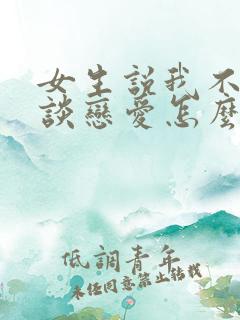 女生説我不
談戀愛怎麼
低調青年
未經同意禁止轉載